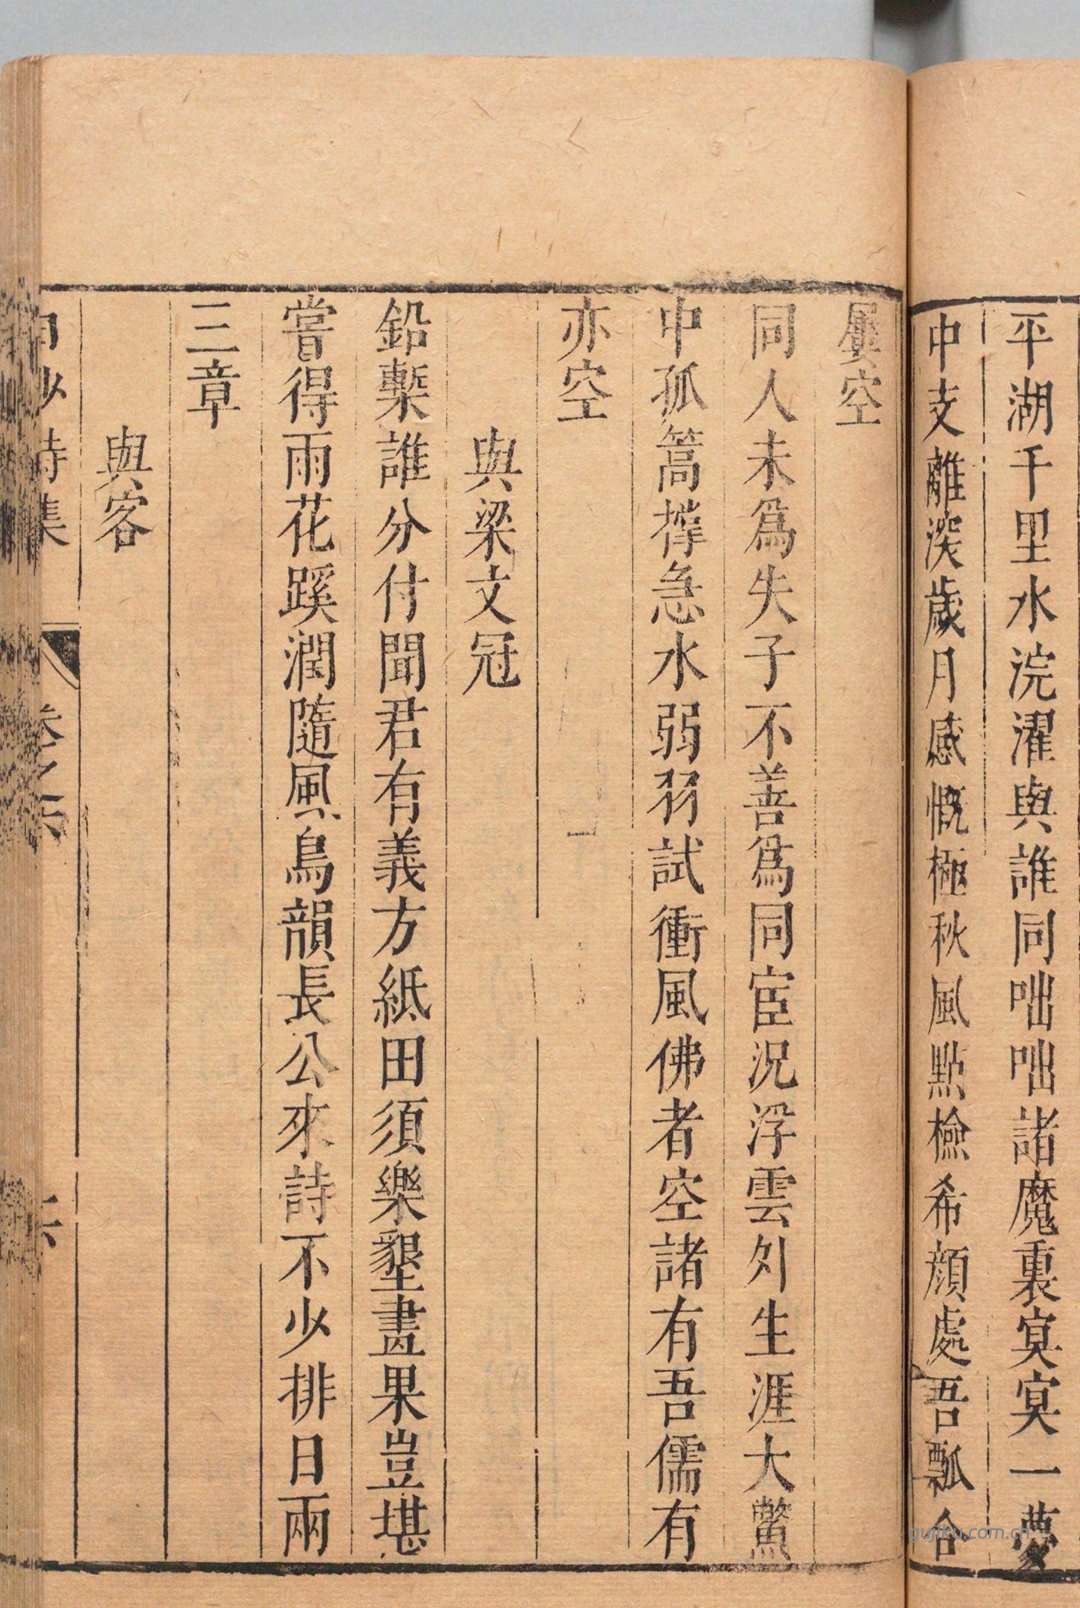 平湖千里水浣濯與誰同咄咄諸魔裏寞寞一夢
中支離深歲月感慨極秋風點檢希顔處吾瓢合
屢空
同人未爲失子不善爲同宦況浮雲外生涯大鱉
中孤篙撑急水弱羽試衝風佛者空諸有吾儒有
亦空
與梁文冠
鉛槧誰分付聞君有義方紙田須樂墾畫果豈堪
嘗得雨花蹊潤隨風鳥韻長公來詩不少排日兩
三章
與客
白沙詩集
卷之六
六
gujitu.com.cn